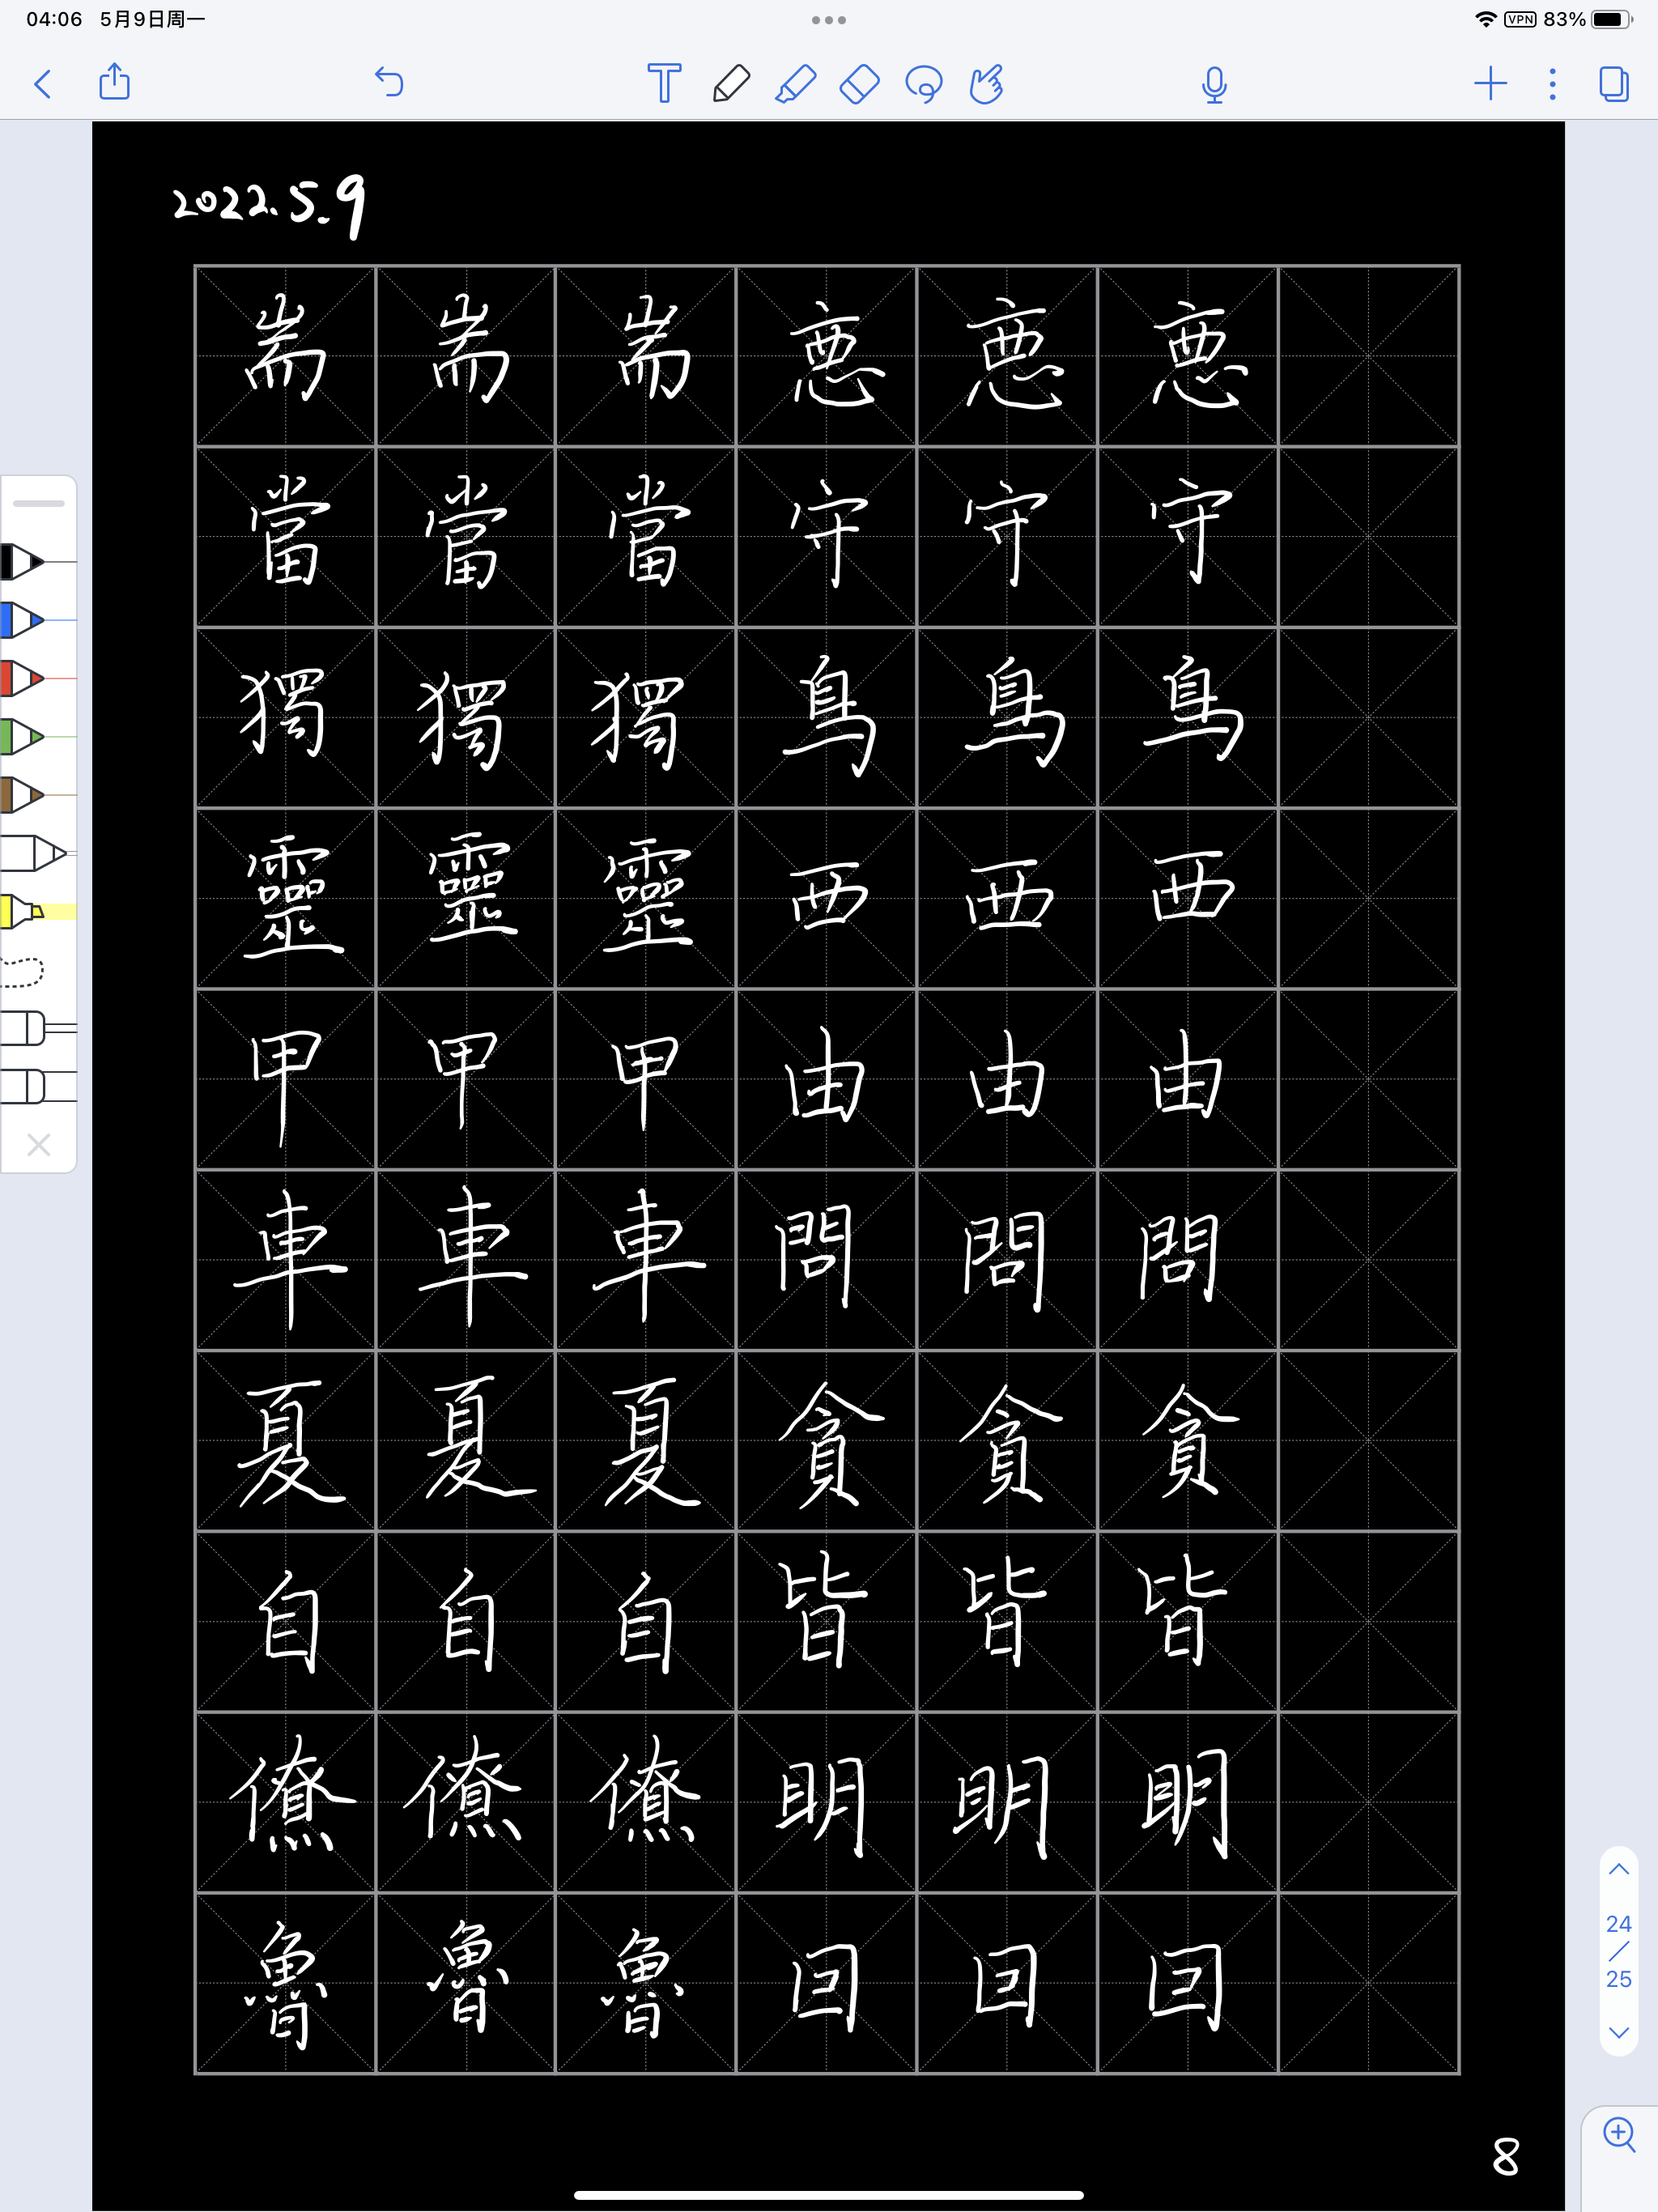 04:06 5月9日周一
VPN 83%
T
2022.5.9
耑 耑 耑
當 當 當 守 守 守
獨 獨 獨 鳥 鳥 鳥
靈 靈 靈 西 西 西
甲 甲 甲 由 由 由
車 車 車 問 問 問
夏 夏 夏 貪 貪 貪
自 自 自 皆 皆 皆
僚 僚 僚 明 明 明
魯 魯 魯 回 回 回
24
/
25
8